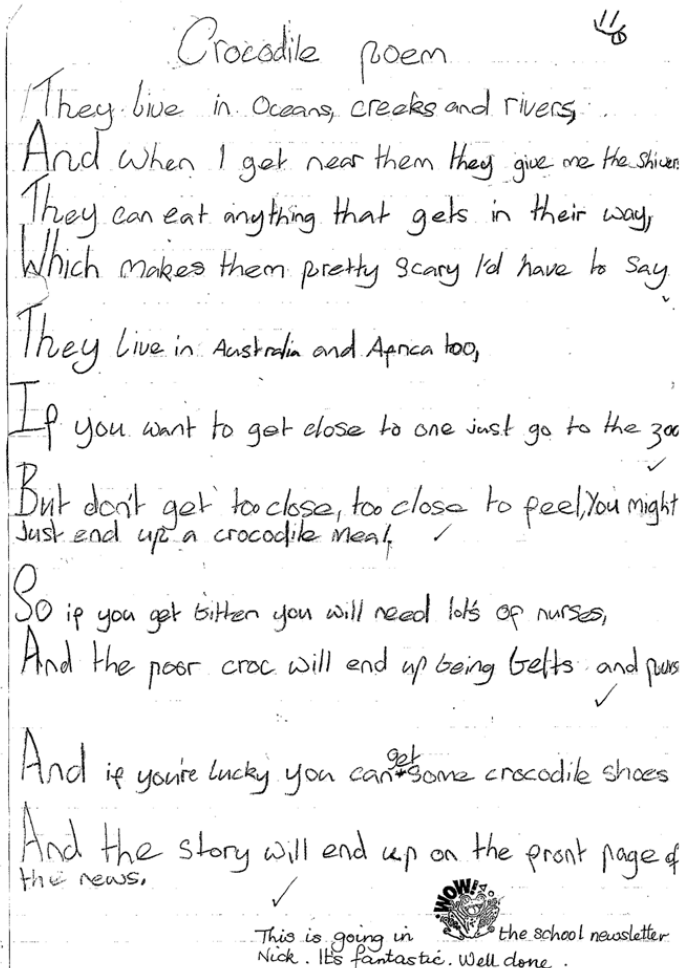 Crocodile poem
They live in Oceans, creeks and rivers,
And when I get near them they give me the Shivers
They can eat anything that gets in their way,
Which makes them pretty scary I'd have to say
They live in Australia and Africa too,
If you want to get close to one just go to the zoo
But don't get too close, too close to feel, You might
just end up a crocodile meal,
So if you get bitten you will need lots of nurses,
And the poor croc will end up being belts and purs
And if you're lucky you can get some crocodile shoes
And the story will end up on the front page of
the news.
WOW!
This is going in the school newsletter
Nick. It's fantastic. Well done.